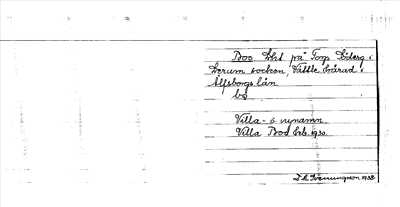 Boo. Lht på Torp Söderg. i
Lerum socken, Vättle härad i
Älfsborgs län
bo
Villa- o vynamn.
Villa Boo Erb. 1930.
1938